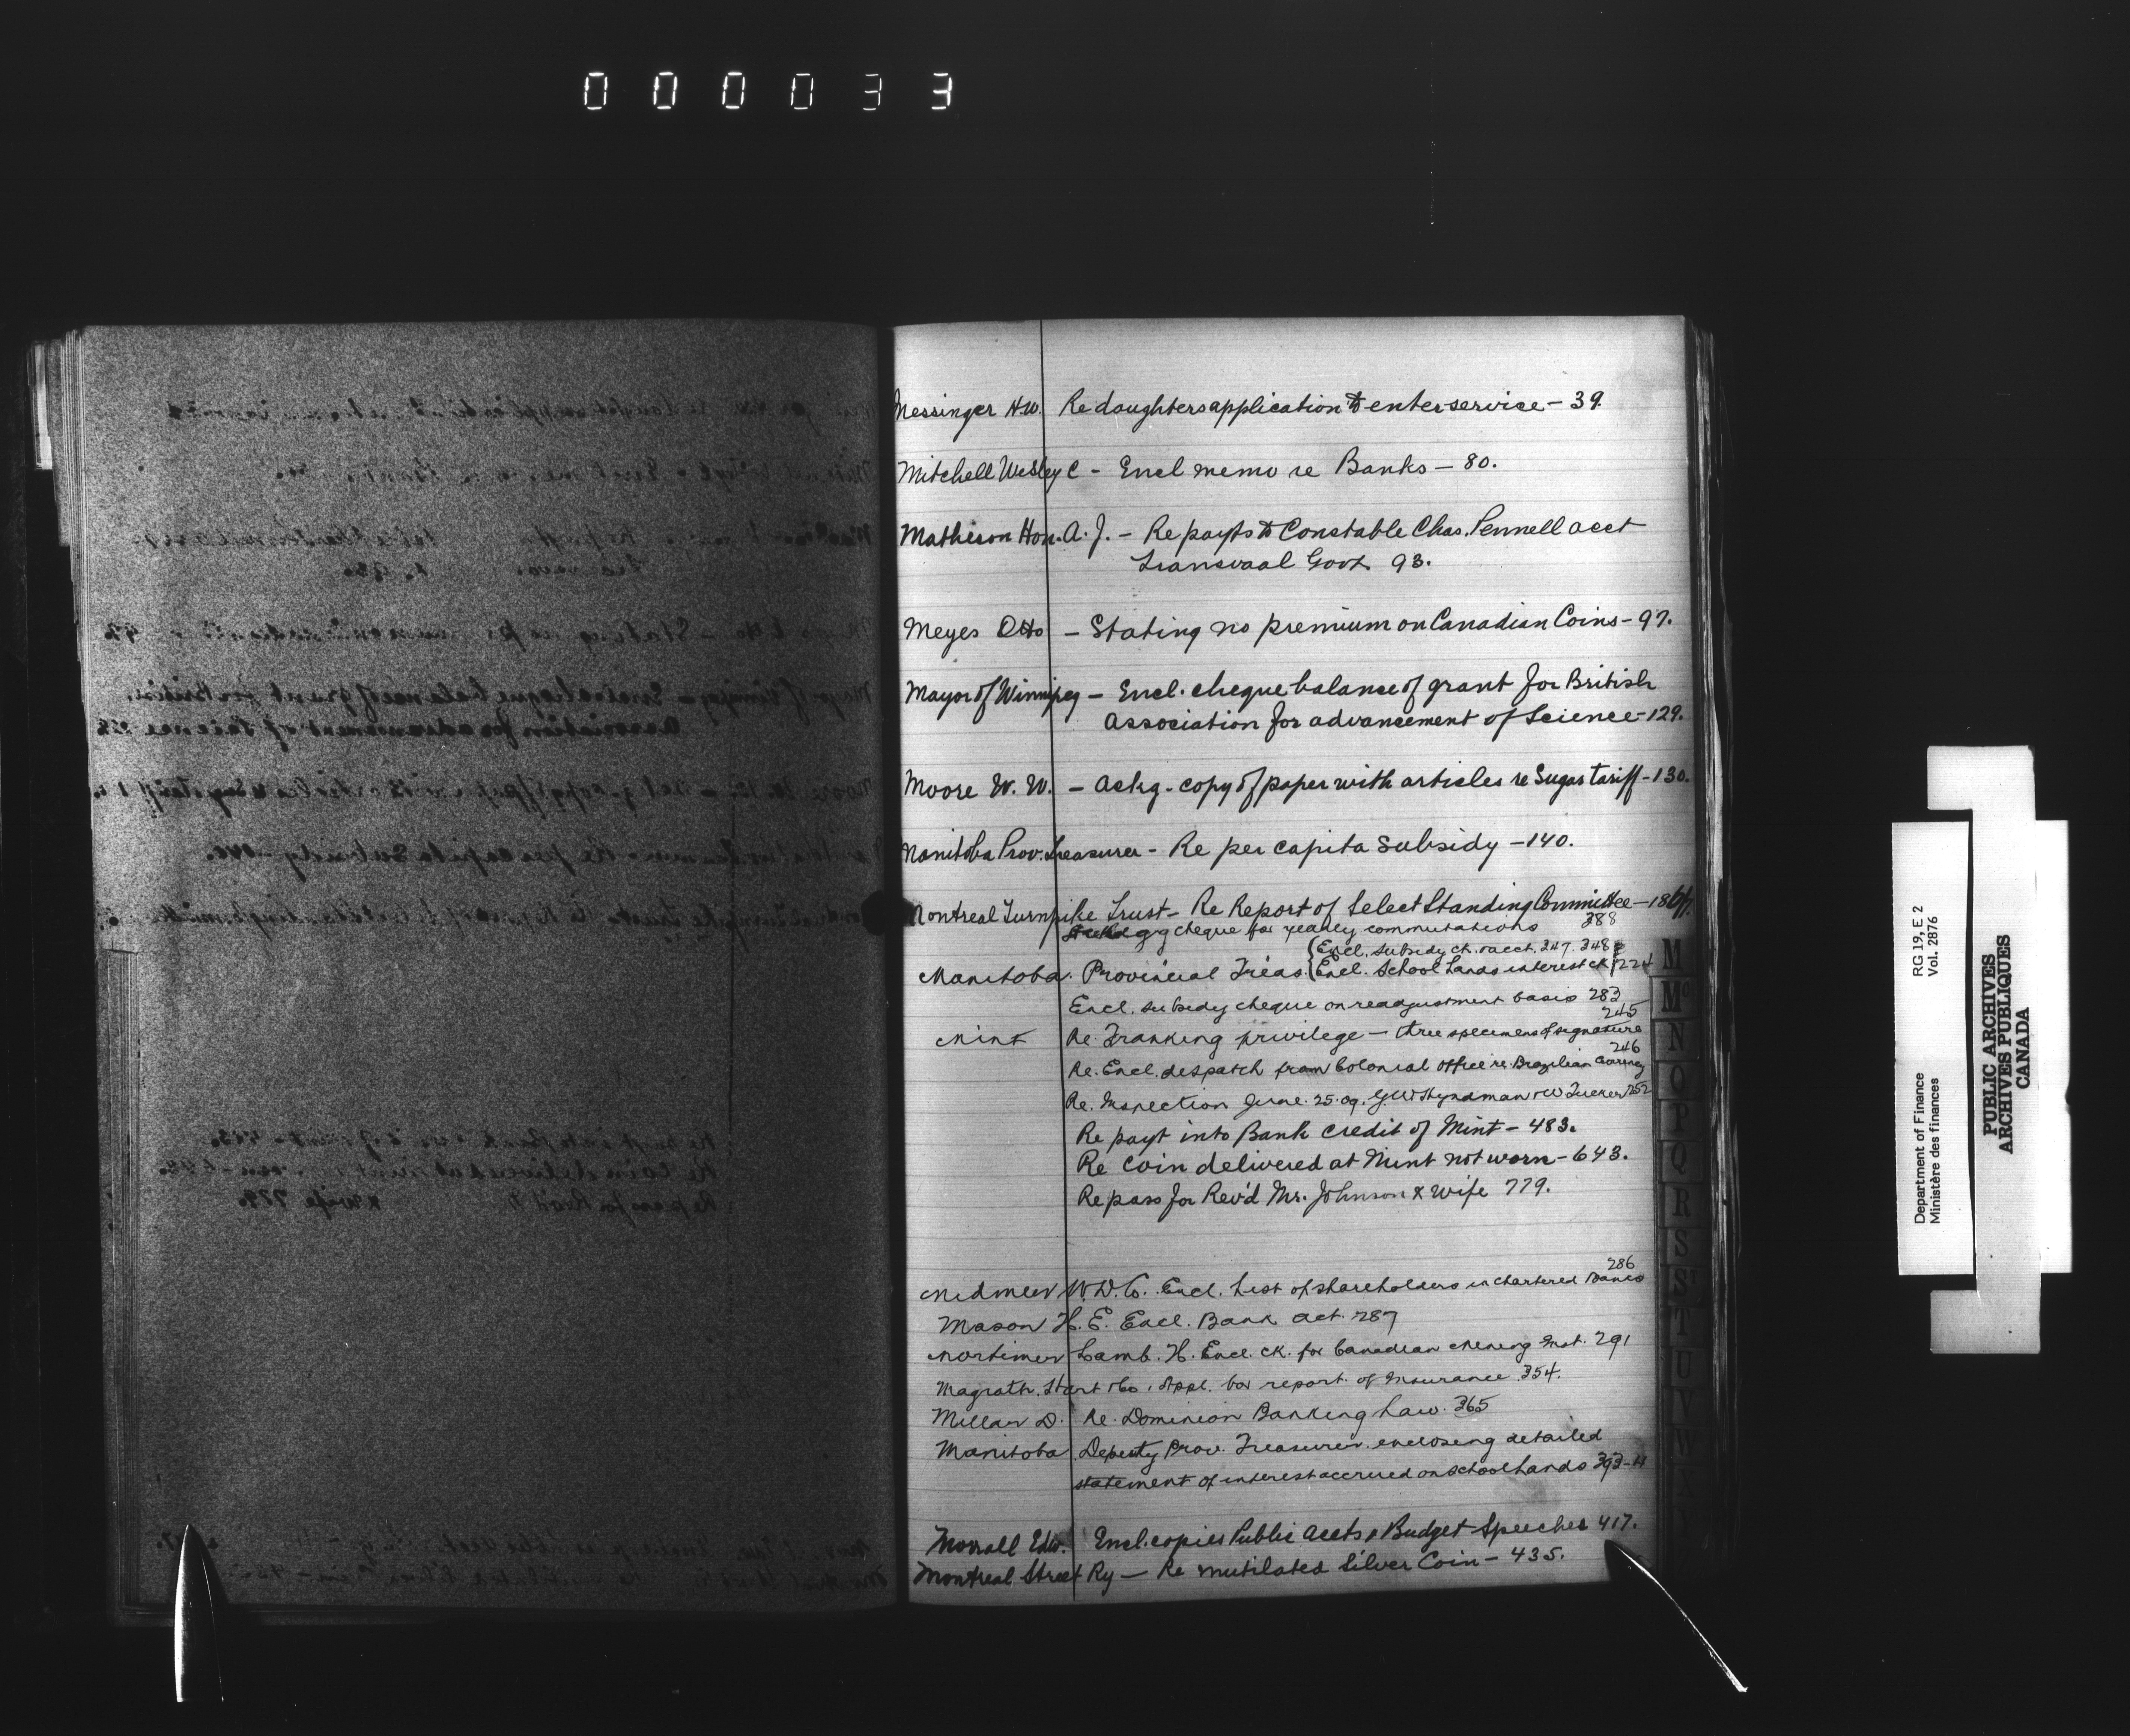 000033
Messinger H.W. Re daughters application to enter service - 39.
Mitchell Wesley C - Encl memo re Banks - 80.
Matheson Hon. A. J. - Re payts to Constable Chas. Pennell acct
Transvaal Govt. 93.
Meyes Otto - Stating no premium on Canadian Coins - 97.
Mayor of Winnipeg - Encl. cheque balance of grant for British
Association for advancement of Science - 129.
Moore W. W. - Ackg. copy of paper with articles re Sugar tariff - 130.
Manitoba Prov. Treasurer - Re per capita subsidy - 140.
Montreal Turnpike Trust - Re Report of Select Standing Committee - 186
cheque for yearly commutations 388
Encl. subsidy ck. 247. 248
Manitoba. Provincial Treas. Encl. School Lands interest ck 224
Encl. subsidy cheque on readjustment basis 283
245
Mint Re. Franking privilege - three specimens of signature
246
Re. Encl. despatch from Colonial office re. Brazilian
Re. Inspection June. 25. 09. G.W. Hyndman W Tucker 252
Re payt into Bank credit of Mint - 483.
Re coin delivered at Mint not worn - 643.
Re pass for Rev'd Mr. Johnson & Wife 779.
286
W.D. Co. Encl. List of shareholders in chartered Banks
Mason H. E. Encl. Bank Act. 287
Mortimer Lamb. H. Encl. ck. for Canadian Mining Inst. 291
Magrath. Hart & Co. Appl. for report of Insurance 354.
Millar D. Re. Dominion Banking Law. 365
Manitoba Deputy Prov. Treasurer. enclosing detailed
statement of interest accrued on School Lands 393-4
Morrall Edw. Encl. copies Public Accts & Budget Speeches 417.
Montreal Street Ry - Re mutilated Silver Coin - 435.
M
Mc
N
O
P
Q
R
S
ST
T
U
V
W
Department of Finance RG 19, E 2
Ministère des finances Vol. 2876
PUBLIC ARCHIVES
ARCHIVES PUBLIQUES
CANADA